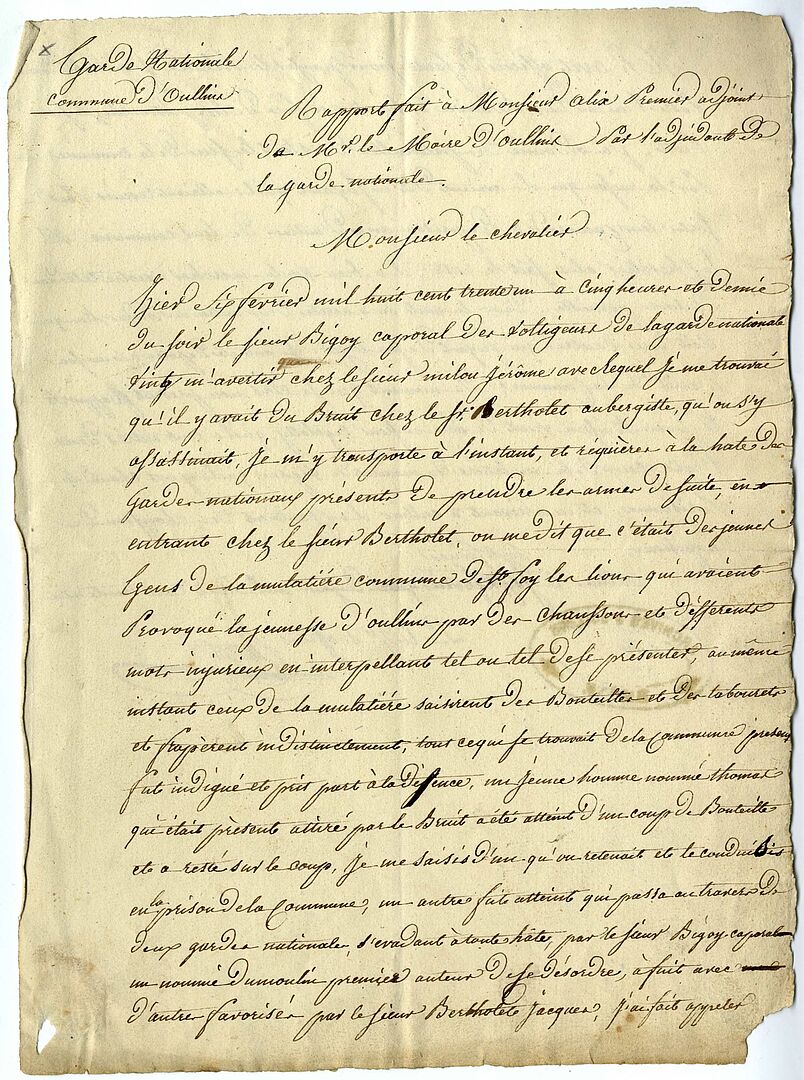 Garde Nationale
commune d'Oullins
Rapport fait à Monsieur alix Premier adjoint
de Mr. le Maire d'oullins Par l'adjudant de
la garde nationale.
Monsieur le chevalier
Hier Six fevrier mil huit cent trente un à cinq heures et demie
du soir le sieur Bigoy caporal des voltigeurs de la garde nationale
vint m'avertir chez le sieur milou Jérôme avec lequel Je me trouvai
qu'il y avait du Bruit chez le Sr. Bertholet aubergiste, qu'on s'y
assassinait, Je m'y transporte à l'instant, et réquières à la hate des
Gardes nationaux présents de prendre les armes de suite, en
entrant chez le siéur Bertholet, on me dit que c'était des jeunes
Gens de la mulatiére commune de Ste. foy les lions qui avaient
Provoqué la jeunesse d'oullins par des chansons et différents
mots injurieux en interpellant tel ou tel de sé présenter, au même
instant ceux de la mulatiére saisirent des Bouteilles et des tabourets
et frapèrent indistinctement, tous ce qui se trouvait de la Commune présent
fut indigné et prit part à la défence, un Jeune homme nommé thomas
qui était présent attiré par le Bruit a été atteint d'un coup de Bouteille
et a resté sur le coup, Je me saisis d'un qu'on retenait et le conduisis
en la prison de la Commune, un autre fut atteint qui passa au travers de
deux gardes nationale, s'evadant à toute hâte, par le siéur Bigoy caporal
un nommé Dumoulin premier auteur de se désordre, à fuit avec
d'autre favorisés par le sieur Bertholet Jacques, J'ai fait appeler